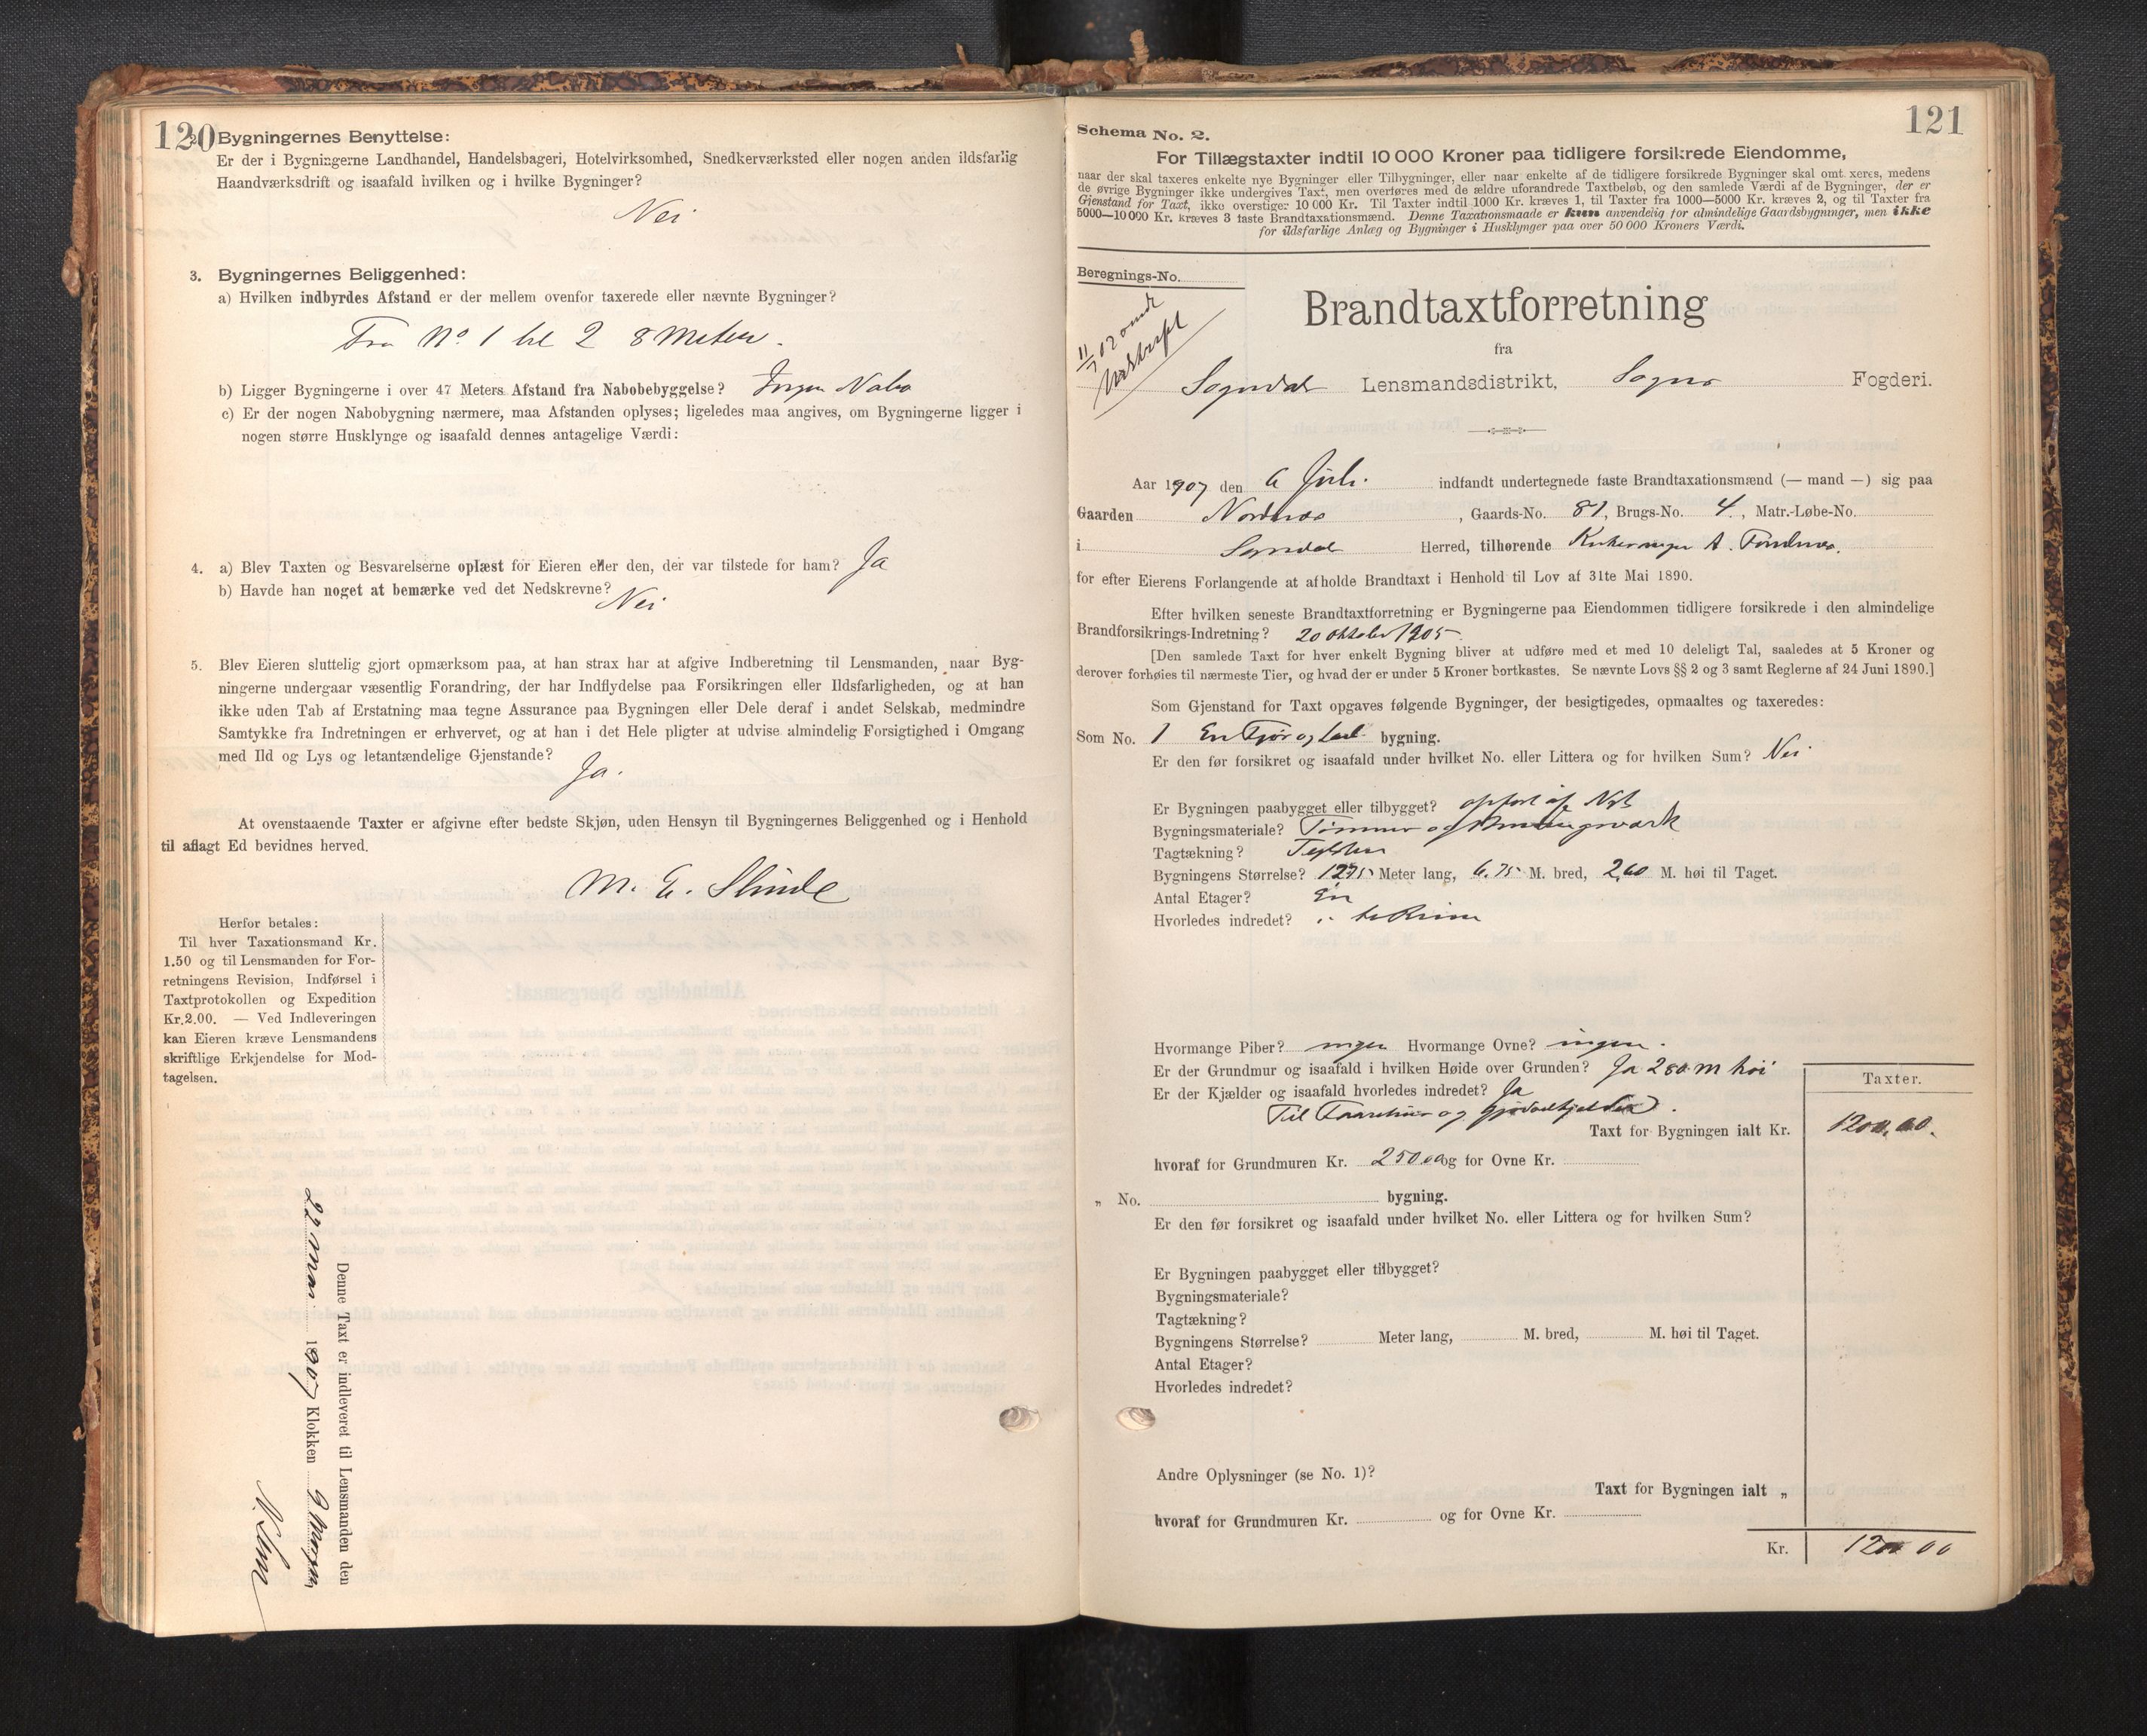 120
2. Bygningernes Benyttelse:
Er der i Bygningerne Landhandel, Handelsbageri, Hotelvirksomhed, Snedkerværksted eller nogen anden ildsfarlig
Haandværksdrift og isaafald hvilken og i hvilke Bygninger?
Nei
3. Bygningernes Beliggenhed:
a) Hvilken indbyrdes Afstand er der mellem ovenfor taxerede eller nævnte Bygninger?
Fra No 1 til 2 8 Meter.
b) Ligger Bygningerne i over 47 Meters Afstand fra Nabobebyggelse? Ingen Nabo
c) Er der nogen Nabobygning nærmere, maa Afstanden oplyses; ligeledes maa angives, om Bygningerne ligger i
nogen større Husklynge og isaafald dennes antagelige Værdi:
4. a) Blev Taxten og Besvarelserne oplæst for Eieren eller den, der var tilstede for ham? Ja
b) Havde han noget at bemærke ved det Nedskrevne? Nei
5. Blev Eieren sluttelig gjort opmærksom paa, at han strax har at afgive Indberetning til Lensmanden, naar Byg-
ningerne undergaar væsentlig Forandring, der har Indflydelse paa Forsikringen eller Ildsfarligheden, og at han
ikke uden Tab af Erstatning maa tegne Assurance paa Bygningen eller Dele deraf i andet Selskab, medmindre
Samtykke fra Indretningen er erhvervet, og at han i det Hele pligter at udvise almindelig Forsigtighed i Omgang
med Ild og Lys og letantændelige Gjenstande?
Ja.
At ovenstaaende Taxter er afgivne efter bedste Skjøn, uden Hensyn til Bygningernes Beliggenhed og i Henhold
til aflagt Ed bevidnes herved.
M. E. Slinde
Herfor betales:
Til hver Taxationsmand Kr.
1.50 og til Lensmanden for For-
retningens Revision, Indførsel i
Taxtprotokollen og Expedition
Kr.2.00. — Ved Indleveringen
kan Eieren kræve Lensmandens
skriftlige Erkjendelse for Mod-
tagelsen.
Denne Taxt er indleveret til Lensmanden den
22 Mai 1907 Klokken 9 Morgen
121
Schema No. 2.
For Tillægstaxter indtil 10 000 Kroner paa tidligere forsikrede Eiendomme,
naar der skal taxeres enkelte nye Bygninger eller Tilbygninger, eller naar enkelte af de tidligere forsikrede Bygninger skal omt xeres, medens
de øvrige Bygninger ikke undergives Taxt, men overføres med de ældre uforandrede Taxtbeløb, og den samlede Værdi af de Bygninger, der er
Gjenstand for Taxt, ikke overstiger 10 000 Kr. Til Taxter indtil 1000 Kr. kræves 1, til Taxter fra 1000—5000 Kr. kræves 2, og til Taxter fra
5000—10 000 Kr. kræves 3 faste Brandtaxationsmænd. Denne Taxationsmaade er kun anvendelig for almindelige Gaardsbygninger, men ikke
for ildsfarlige Anlæg og Bygninger i Husklynger paa over 50 000 Kroners Værdi.
Beregnings-No.
Brandtaxtforretning
fra
Sogndal Lensmandsdistrikt, Sogns Fogderi.
Aar 1907 den 6 Juli. indfandt undertegnede faste Brandtaxationsmænd (— mand —) sig paa
Gaarden Nornes, Gaards-No. 81, Brugs-No. 4, Matr.-Løbe-No.
i Sogndal Herred, tilhørende Kirkesanger A.
for efter Eierens Forlangende at afholde Brandtaxt i Henhold til Lov af 31te Mai 1890.
Efter hvilken seneste Brandtaxtforretning er Bygningerne paa Eiendommen tidligere forsikrede i den almindelige
Brandforsikrings-Indretning? 20 Oktober 1905
[Den samlede Taxt for hver enkelt Bygning bliver at udføre med et med 10 deleligt Tal, saaledes at 5 Kroner og
derover forhøies til nærmeste Tier, og hvad der er under 5 Kroner bortkastes. Se nævnte Lovs §§ 2 og 3 samt Reglerne af 24 Juni 1890.]
Som Gjenstand for Taxt opgaves følgende Bygninger, der besigtigedes, opmaaltes og taxeredes:
Som No. 1 En Fjør og Lad bygning.
Er den før forsikret og isaafald under hvilket No. eller Littera og for hvilken Sum? Nei
Er Bygningen paabygget eller tilbygget? opført af Nyt
Bygningsmateriale? Tømmer og Bindingsværk
Tagtækning? Teglsten
Bygningens Størrelse? 12,75 Meter lang, 6.75 M. bred, 2,60 M. høi til Taget.
Antal Etager? En
Hvorledes indredet?
Hvormange Piber? ingen Hvormange Ovne? ingen.
Er der Grundmur og isaafald i hvilken Høide over Grunden? Ja 2 80 m høi
Er der Kjælder og isaafald hvorledes indredet? Ja
Til Faarehus og Gjødselkjelder.
Taxter.
Taxt for Bygningen ialt Kr. 1200.00.
hvoraf for Grundmuren Kr. 250.00 og for Ovne Kr.
„ No. bygning.
Er den før forsikret og isaafald under hvilket No. eller Littera og for hvilken Sum?
Er Bygningen paabygget eller tilbygget?
Bygningsmateriale?
Tagtækning?
Bygningens Størrelse? Meter lang, M. bred, M. høi til Taget.
Antal Etager?
Hvorledes indredet?
Andre Oplysninger (se No. 1)?
Taxt for Bygningen ialt „
hvoraf for Grundmuren Kr. og for Ovne Kr.
Kr. 1200 00